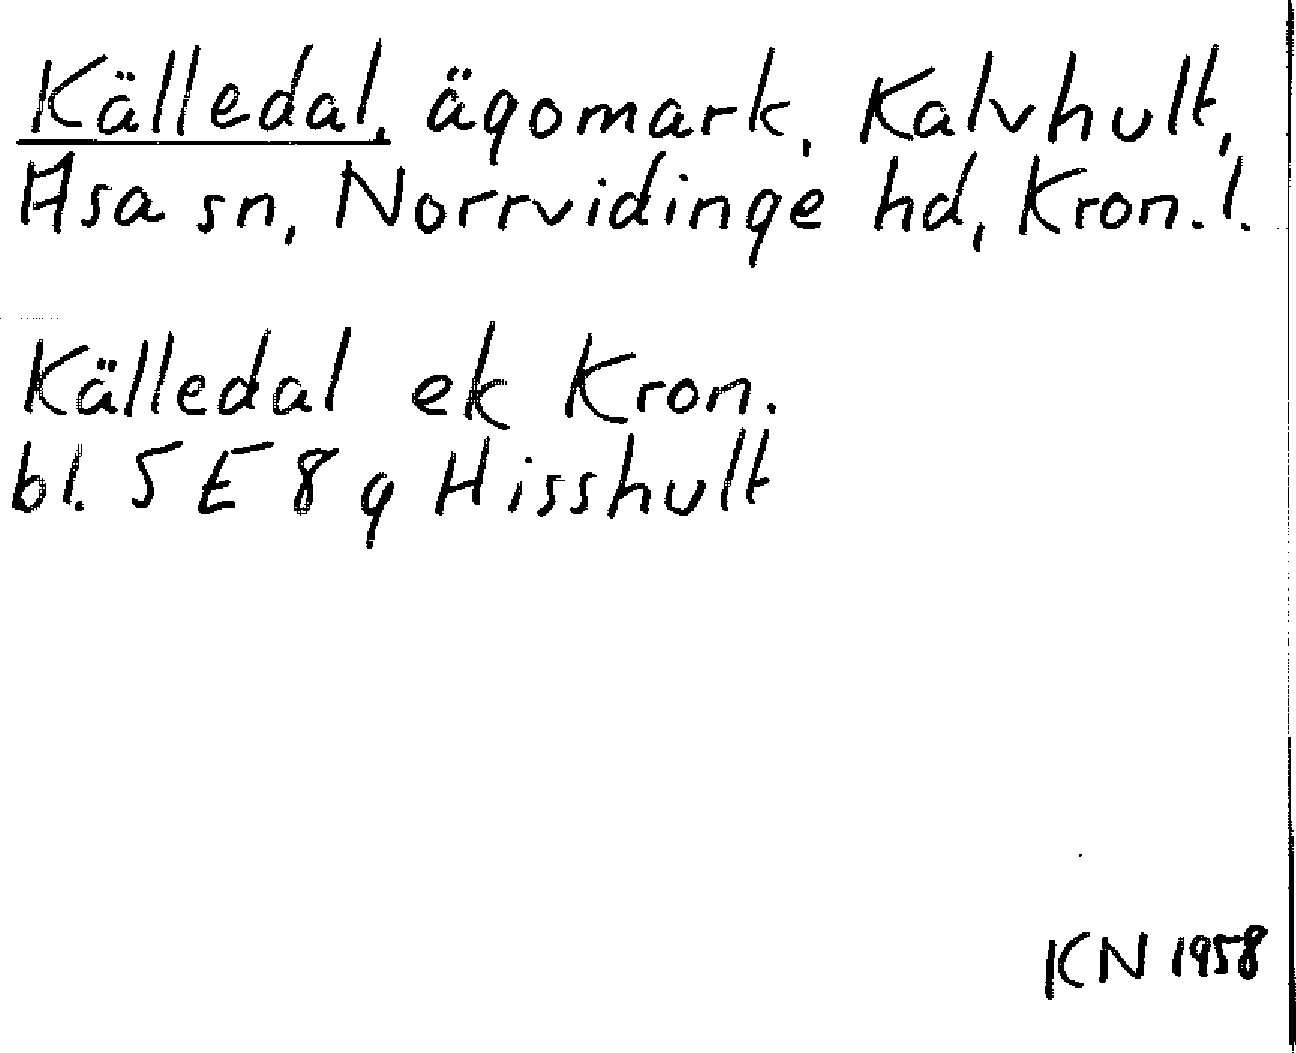 Källedal, ägomark, Kalvhult,
Asa sn, Norrvidinge hd, Kron.l.
Källedal ek Kron.
bl. 5 E 8 g Hisshult
KN 1958